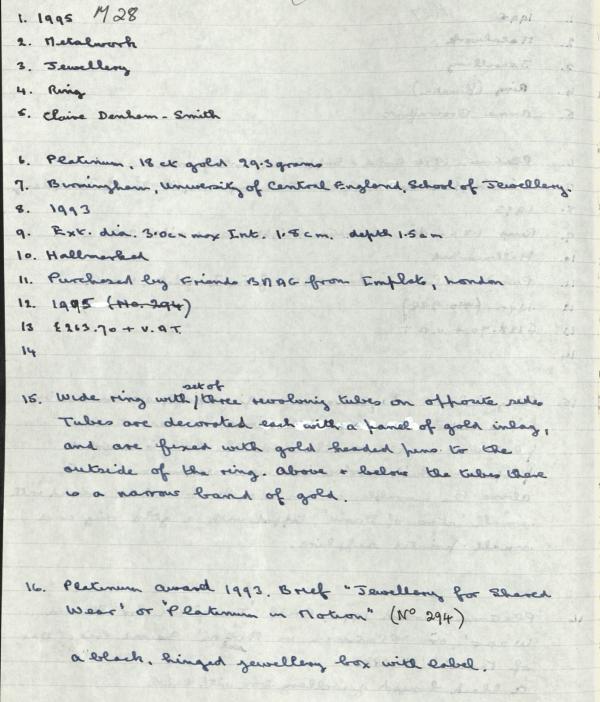 1. 1995 M28
2. Metalwork
3. Jewellery
4. Ring
5. Claire Denham-Smith
6. Platinum, 18 ct gold 29.3 grams
7. Birmingham, University of Central England, School of Jewellery.
8. 1993
9. Ext. dia. 3.0cm max Int. 1.8cm. depth 1.5cm
10. Hallmarked
11. Purchased by Friends BMAG from Implots, London
12. 1995 (No. 294)
13 £263.70 + V.A.T.
14
set of
15. Wide ring with / three revolving tubes on opposite sides
Tubes are decorated each with a panel of gold inlay,
and are fixed with gold headed pins to the
outside of the ring. Above + below the tubes there
is a narrow band of gold.
16. Platinum award 1993. Brief "Jewellery for Shared
Wear' or 'Platinum in Motion" (No 294)
a black, hinged jewellery box with label.